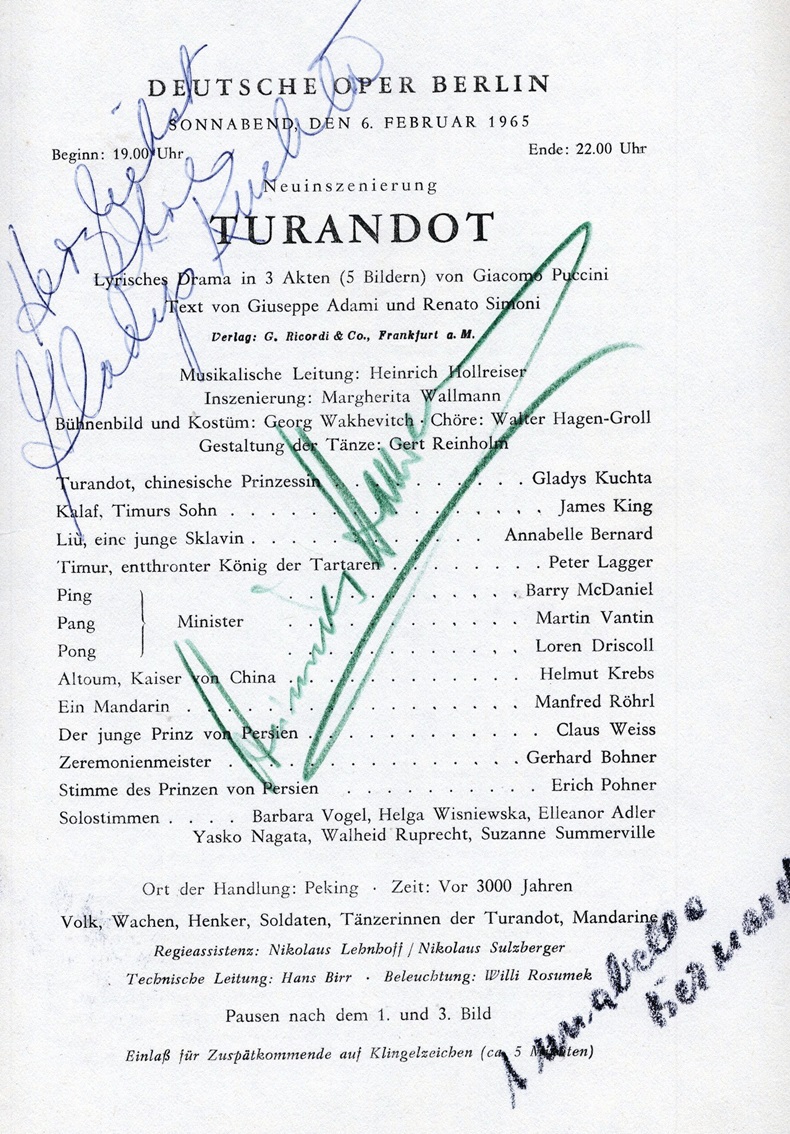 DEUTSCHE OPER BERLIN
SONNABEND, DEN 6. FEBRUAR 1965
Beginn: 19.00 Uhr Ende: 22.00 Uhr
Neuinszenierung
TURANDOT
Lyrisches Drama in 3 Akten (5 Bildern) von Giacomo Puccini
Text von Giuseppe Adami und Renato Simoni
Verlag: G. Ricordi & Co., Frankfurt a. M.
Musikalische Leitung: Heinrich Hollreiser
Inszenierung: Margherita Wallmann
Bühnenbild und Kostüm: Georg Wakhevitch · Chöre: Walter Hagen-Groll
Gestaltung der Tänze: Gert Reinholm
Turandot, chinesische Prinzessin . . . . . . . . . . Gladys Kuchta
Kalaf, Timurs Sohn . . . . . . . . . . . . . . . . James King
Liu, eine junge Sklavin . . . . . . . . . . . . . Annabelle Bernard
Timur, entthronter König der Tartaren . . . . . . . . Peter Lagger
Ping . . . . . . . . . . . . Barry McDaniel
Pang Minister . . . . . . . . . . . . Martin Vantin
Pong . . . . . . . . . . . . Loren Driscoll
Altoum, Kaiser von China . . . . . . . . . . . . . Helmut Krebs
Ein Mandarin . . . . . . . . . . . . . . . . . Manfred Röhrl
Der junge Prinz von Persien . . . . . . . . . . . . Claus Weiss
Zeremonienmeister . . . . . . . . . . . . . . . Gerhard Bohner
Stimme des Prinzen von Persien . . . . . . . . . . Erich Pohner
Solostimmen . . . . Barbara Vogel, Helga Wisniewska, Elleanor Adler
Yasko Nagata, Walheid Ruprecht, Suzanne Summerville
Ort der Handlung: Peking · Zeit: Vor 3000 Jahren
Volk, Wachen, Henker, Soldaten, Tänzerinnen der Turandot, Mandarine
Regieassistenz: Nikolaus Lehnhoff / Nikolaus Sulzberger
Technische Leitung: Hans Birr · Beleuchtung: Willi Rosumek
Pausen nach dem 1. und 3. Bild
Einlaß für Zuspätkommende auf Klingelzeichen (ca. 5 Minuten)
Herzlichst
Ihre
Gladys Kuchta
Annabelle
Bernard